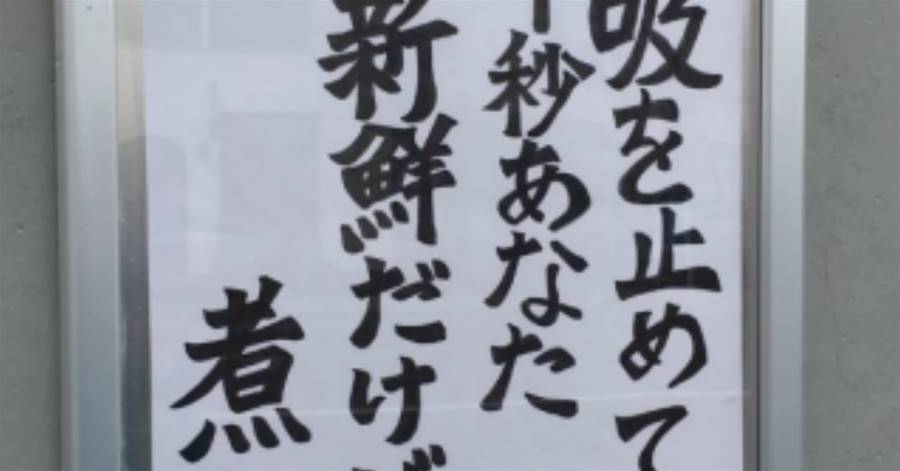 吸を止めて
秒あなた
新鮮だけ
煮